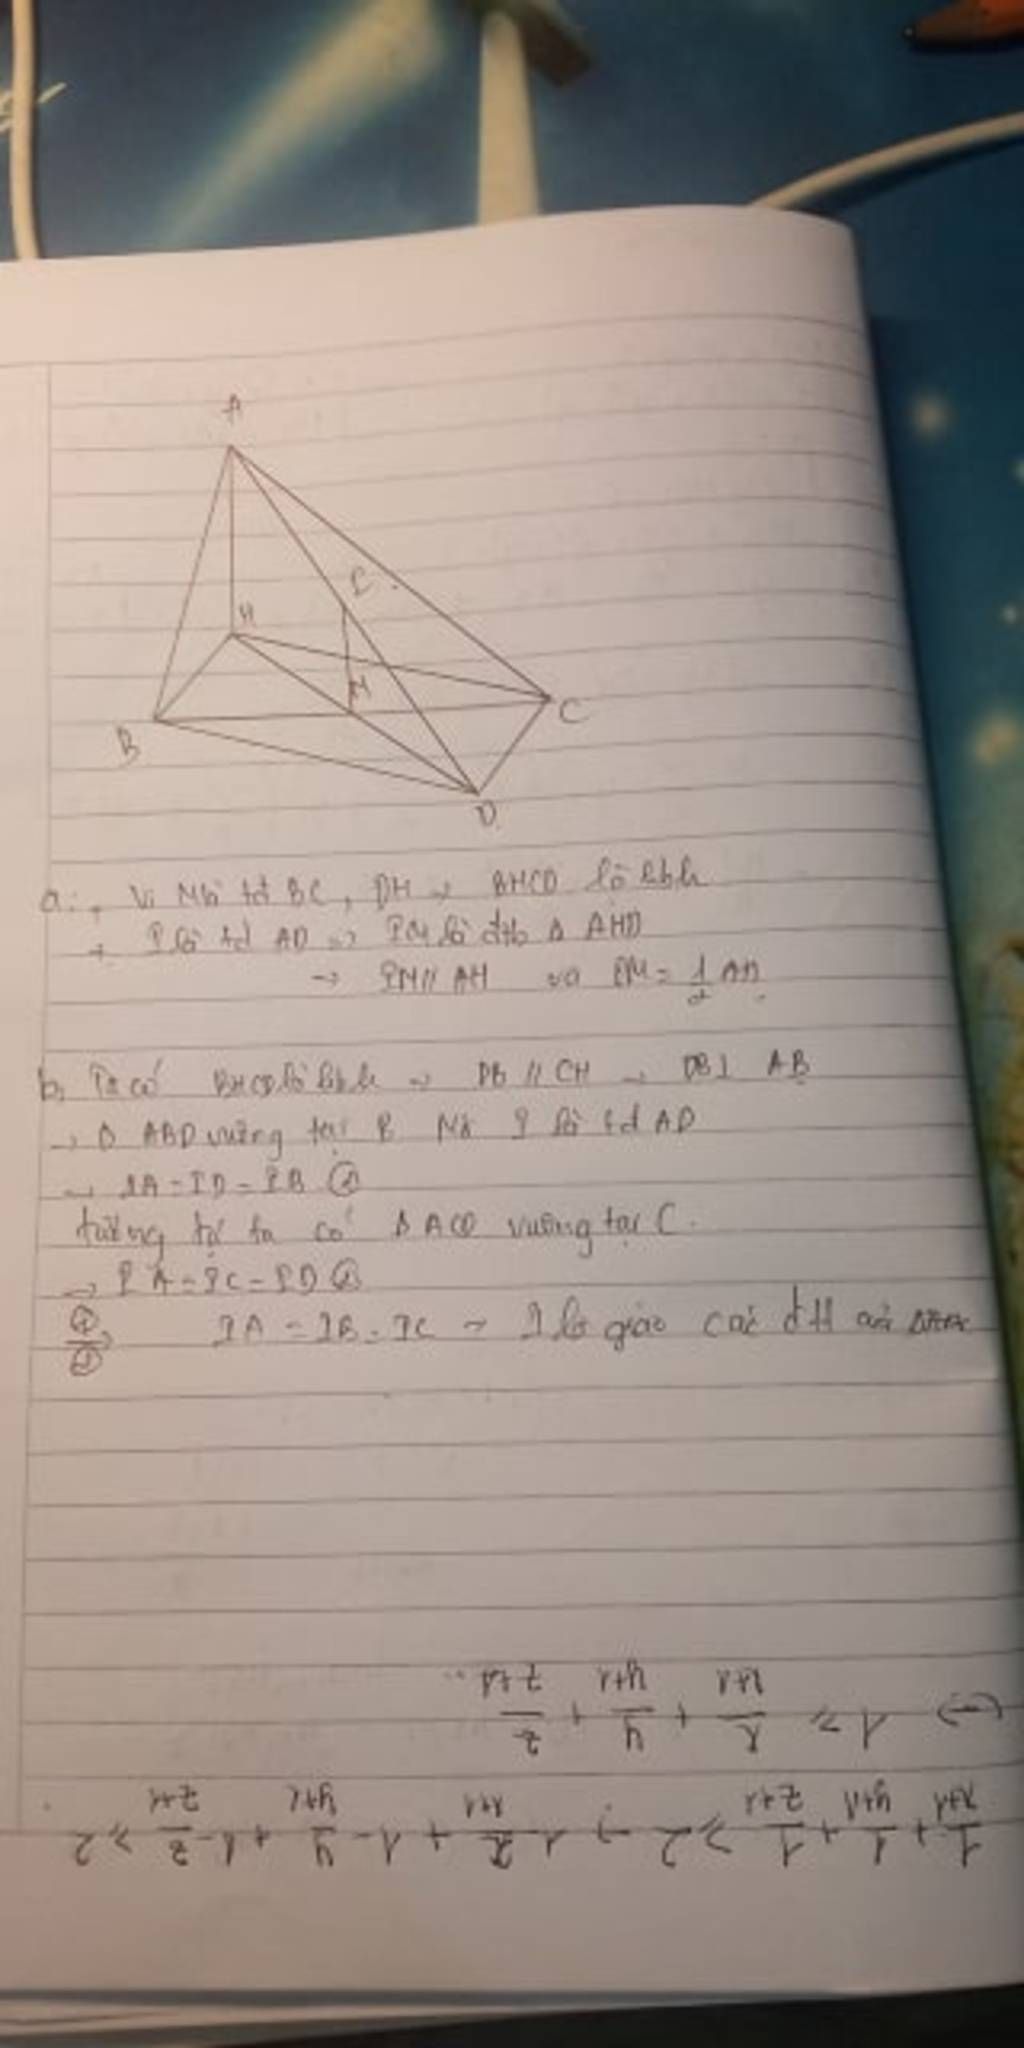 A
H
M
B
C
D
a. + Vì M là tđ BC, DH → BHCD là hbh
+ I là tđ AD → IM là đtb Δ AHD
→ IM // AH và IM = 1/2 AH
b, Ta có BHCD là hbh → DB // CH → DB ⊥ AB
→ Δ ABD vuông tại B Mà I là tđ AD
→ IA = ID = IB
tương tự ta có Δ ACD vuông tại C.
→ IA = IC = ID ②
IA = IB = IC → I là giao các đtt của
1/(x+1) + 1/(y+1) + 1/(z+1) ≥ 2 → 1 - x/(x+1) + 1 - y/(y+1) + 1 - z/(z+1) ≥ 2
1 ≥ x/(x+1) + y/(y+1) + z/(z+1)